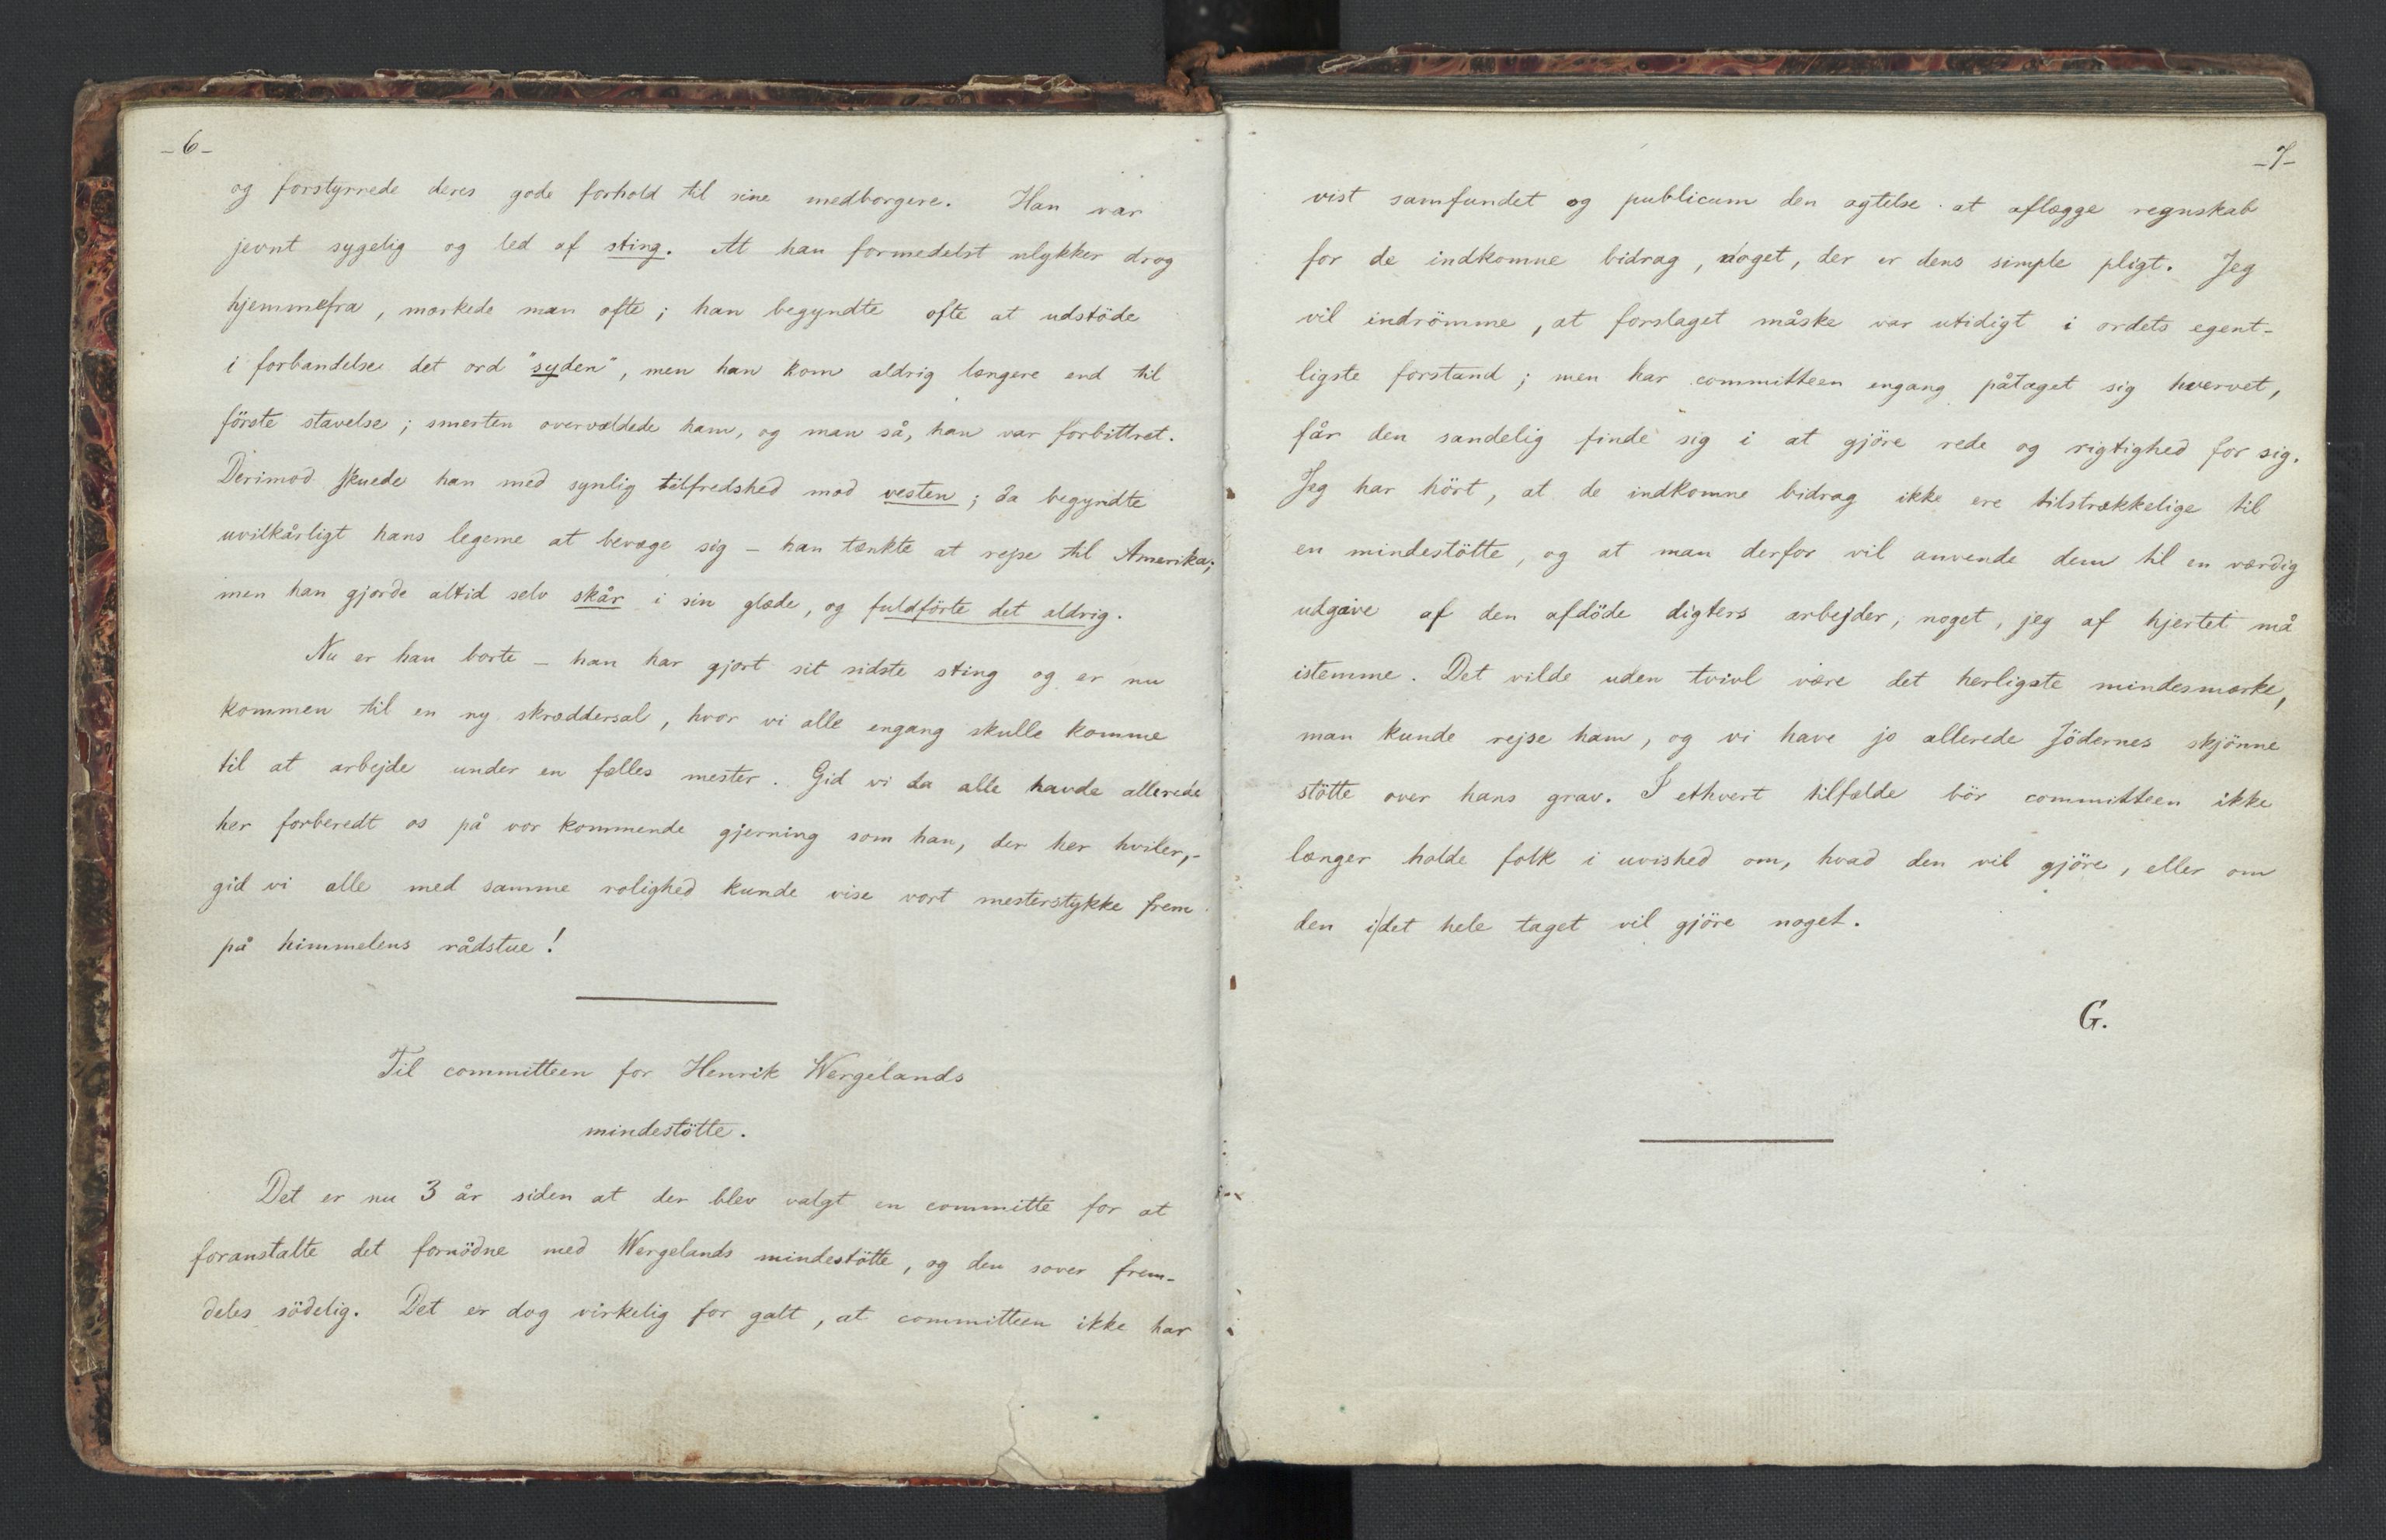 -6-
og forstyrrede deres gode forhold til sine medborgere. Han var
jevnt sygelig og led af sting. At han formedelst ulykker drog
hjemmefra, mærkede man ofte; han begyndte ofte at udstöde
i forbandelse det ord "syden", men han kom aldrig længere end til
förste stavelse; smerten overvældede ham, og man så, han var forbittret.
Derimod skuede han med synlig tilfredshed mod vesten; da begyndte
uvilkårligt hans legeme at bevæge sig – han tænkte at rejse til Amerika;
men han gjorde altid selv skår i sin glæde, og fuldförte det aldrig.
Nu er han borte – han har gjort sit sidste sting og er nu
kommen til en ny skræddersal, hvor vi alle engang skulle komme
til at arbejde under en fælles mester. Gid vi da alle havde allerede
her forberedt os på vor kommende gjerning som han, der her hviler,–
gid vi alle med samme rolighed kunde vise vort mesterstykke frem
på himmelens rådstue!
Til committeen for Henrik Wergelands
mindestötte.
Det er nu 3 år siden at der blev valgt en committe for at
foranstalte det fornödne med Wergelands mindestötte, og den sover frem-
deles södelig. Det er dog virkelig for galt, at committeen ikke har
-7-
vist samfundet og publicum den agtelse at aflægge regnskab
for de indkomne bidrag, noget, der er dens simple pligt. Jeg
vil indrömme, at forslaget måske var utidigt i ordets egent-
ligste forstand; men har committeen engang påtaget sig hvervet,
får den sandelig finde sig i at gjöre rede og rigtighed for sig.
Jeg har hört, at de indkomne bidrag ikke ere tilstrækkelige til
en mindestötte, og at man derfor vil anvende dem til en værdig
udgave af den afdöde digters arbejder; noget, jeg af hjertet må
istemme. Det vilde uden tvivl være det herligste mindesmærke,
man kunde rejse ham, og vi have jo allerede Jödernes skjönne
stötte over hans grav. I ethvert tilfælde bör committeen ikke
længer holde folk i uvished om, hvad den vil gjöre, eller om
den i det hele taget vil gjöre noget.
G.